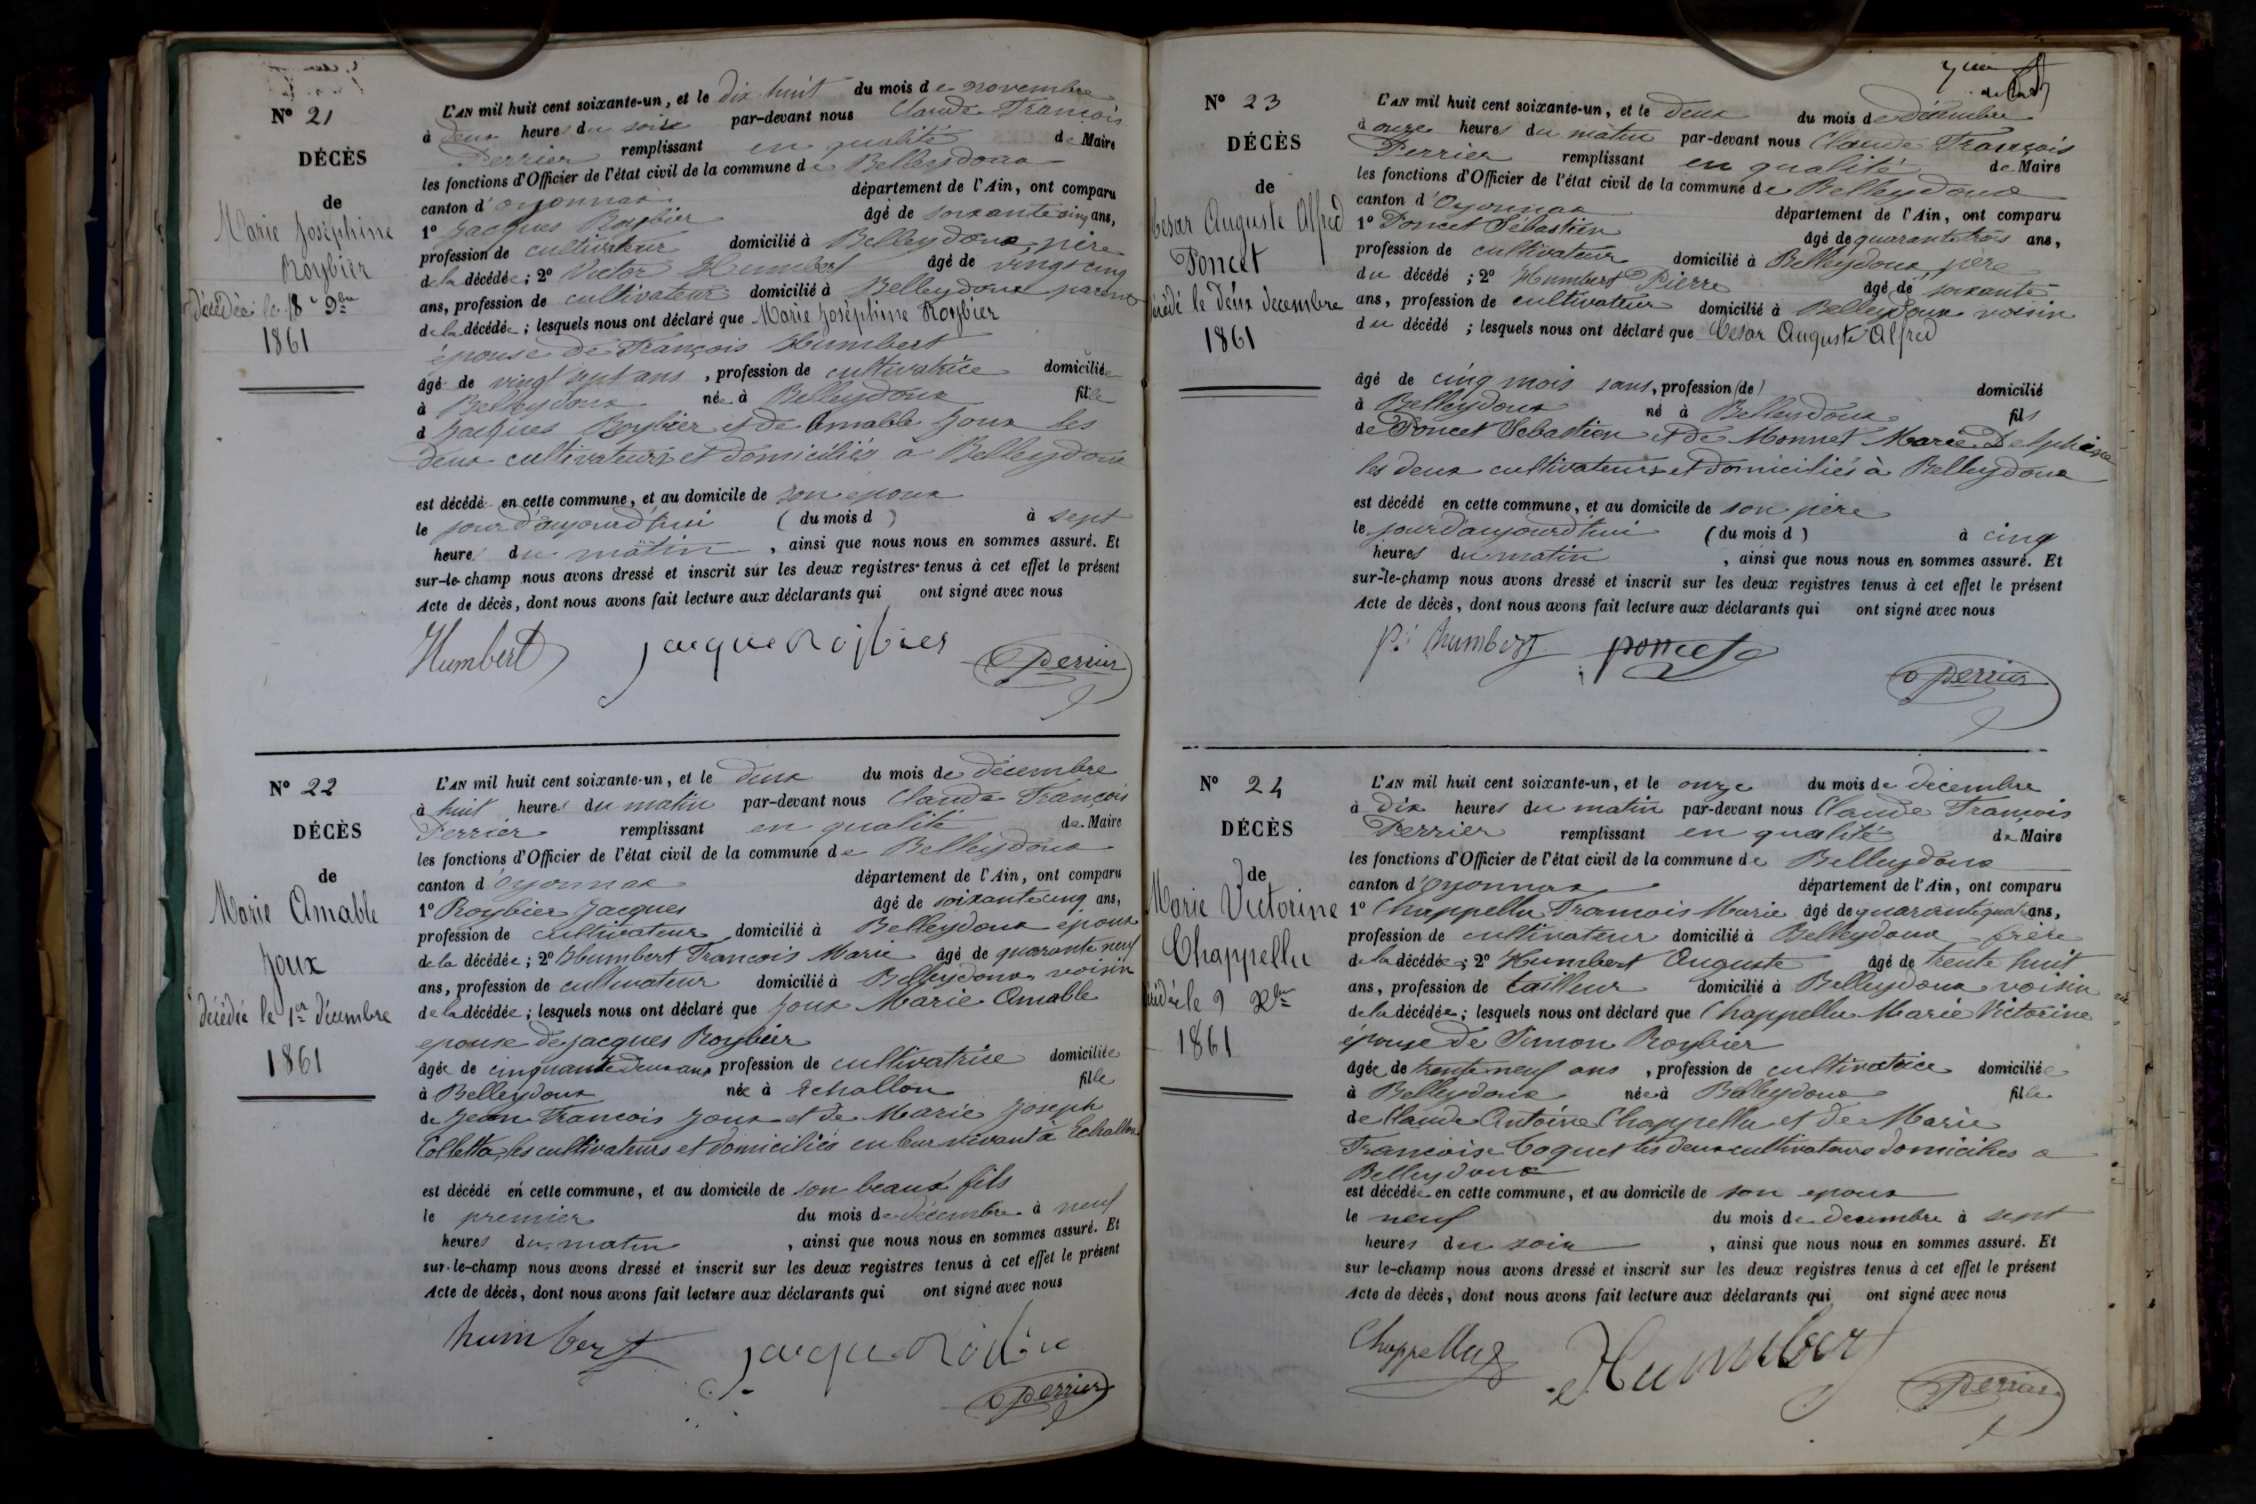 N° 21
DÉCÈS
de
Marie Joséphine
Roybier
décédée le 18 9bre
1861
L'AN mil huit cent soixante-un, et le dix huit du mois de novembre
à deux heures du soir par-devant nous Claude François
Perrier remplissant en qualité de Maire
les fonctions d'Officier de l'état civil de la commune de Belleydoux
canton d'oyonnax département de l'Ain, ont comparu
1° Jacques Roybier âgé de soixante cinq ans,
profession de cultivateur domicilié à Belleydoux, père
de la décédée; 2° Victor Humbert âgé de vingt cinq
ans, profession de cultivateur domicilié à Belleydoux parens
de la décédée; lesquels nous ont déclaré que Marie Joséphine Roybier
épouse de François Humbert
âgé de vingt sept ans, profession de cultivatrice domiciliée
à Belleydoux née à Belleydoux fille
d Jacques Roybier et de Amable Joux les
deux cultivateurs et domiciliés à Belleydoux
est décédé en cette commune, et au domicile de son epoux
le jour d'aujourd'hui (du mois d ) à sept
heures du matin, ainsi que nous nous en sommes assuré. Et
sur-le-champ nous avons dressé et inscrit sur les deux registres tenus à cet effet le présent
Acte de décès, dont nous avons fait lecture aux déclarants qui ont signé avec nous
Humbert jacque Roybier Perrier
N° 22
DÉCÈS
de
Marie Amable
Joux
décédée le 1er décembre
1861
L'AN mil huit cent soixante-un, et le deux du mois de décembre
à huit heures du matin par-devant nous Claude François
Perrier remplissant en qualité de Maire
les fonctions d'Officier de l'état civil de la commune de Belleydoux
canton d'Oyonnax département de l'Ain, ont comparu
1° Roybier Jacques âgé de soixante cinq ans,
profession de cultivateur domicilié à Belleydoux époux
de la décédée; 2° Humbert François Marie âgé de quarante neuf
ans, profession de cultivateur domicilié à Belleydoux voisin
de la décédée; lesquels nous ont déclaré que Joux Marie Amable
epouse de Jacques Roybier
âgée de cinquante deux ans profession de cultivatrice domiciliée
à Belleydoux née à Echallon fille
de Jean François Joux et de Marie Joseph
Colletta, les cultivateurs et domiciliés en leur vivant à Echallon
est décédé en cette commune, et au domicile de son beaux fils
le premier du mois de décembre à neuf
heures du matin, ainsi que nous nous en sommes assuré. Et
sur-le-champ nous avons dressé et inscrit sur les deux registres tenus à cet effet le présent
Acte de décès, dont nous avons fait lecture aux déclarants qui ont signé avec nous
humbert jacque Perrier
N° 23
DÉCÈS
de
Cesar Auguste Alfred
Poncet
décédé le deux decembre
1861
L'AN mil huit cent soixante-un, et le deux du mois de décembre
à onze heures du matin par-devant nous Claude François
Perrier remplissant en qualité de Maire
les fonctions d'Officier de l'état civil de la commune de Belleydoux
canton d'Oyonnax département de l'Ain, ont comparu
1° Poncet Sébastien âgé de quarante trois ans,
profession de cultivateur domicilié à Belleydoux, père
du décédé; 2° Humbert Pierre âgé de soixante
ans, profession de cultivateur domicilié à Belleydoux voisin
du décédé; lesquels nous ont déclaré que Cesar Auguste Alfred
âgé de cinq mois sans, profession (de) domicilié
à Belleydoux né à Belleydoux fils
de Poncet Sebastien et de Monnet Marie Delphine
les deux cultivateurs et domiciliés à Belleydoux
est décédé en cette commune, et au domicile de son père
le jour d'aujourd'hui (du mois d ) à cinq
heures du matin, ainsi que nous nous en sommes assuré. Et
sur-le-champ nous avons dressé et inscrit sur les deux registres tenus à cet effet le présent
Acte de décès, dont nous avons fait lecture aux déclarants qui ont signé avec nous
P. humbert poncet Perrier
N° 24
DÉCÈS
de
Marie Victorine
Chappellu
décédée le 9 Xbre
1861
L'AN mil huit cent soixante-un, et le onze du mois de décembre
à dix heures du matin par-devant nous Claude François
Perrier remplissant en qualité de Maire
les fonctions d'Officier de l'état civil de la commune de Belleydoux
canton d'Oyonnax département de l'Ain, ont comparu
1° Chappellu François Marie âgé de quarante quatre ans,
profession de cultivateur domicilié à Belleydoux frère
de la décédée; 2° Humbert Auguste âgé de trente huit
ans, profession de tailleur domicilié à Belleydoux voisin
de la décédée; lesquels nous ont déclaré que Chappellu Marie Victorine
épouse de Simon Roybier
âgée de trente neuf ans, profession de cultivatrice domiciliée
à Belleydoux née à Belleydoux fille
de Claude Antoine Chappellu et de Marie
Françoise Coquet les deux cultivateurs domiciliés a
Belleydoux
est décédée en cette commune, et au domicile de son epoux
le neuf du mois de decembre à sept
heures du soir, ainsi que nous nous en sommes assuré. Et
sur le-champ nous avons dressé et inscrit sur les deux registres tenus à cet effet le présent
Acte de décès, dont nous avons fait lecture aux déclarants qui ont signé avec nous
Chappellu Humbert Perrier